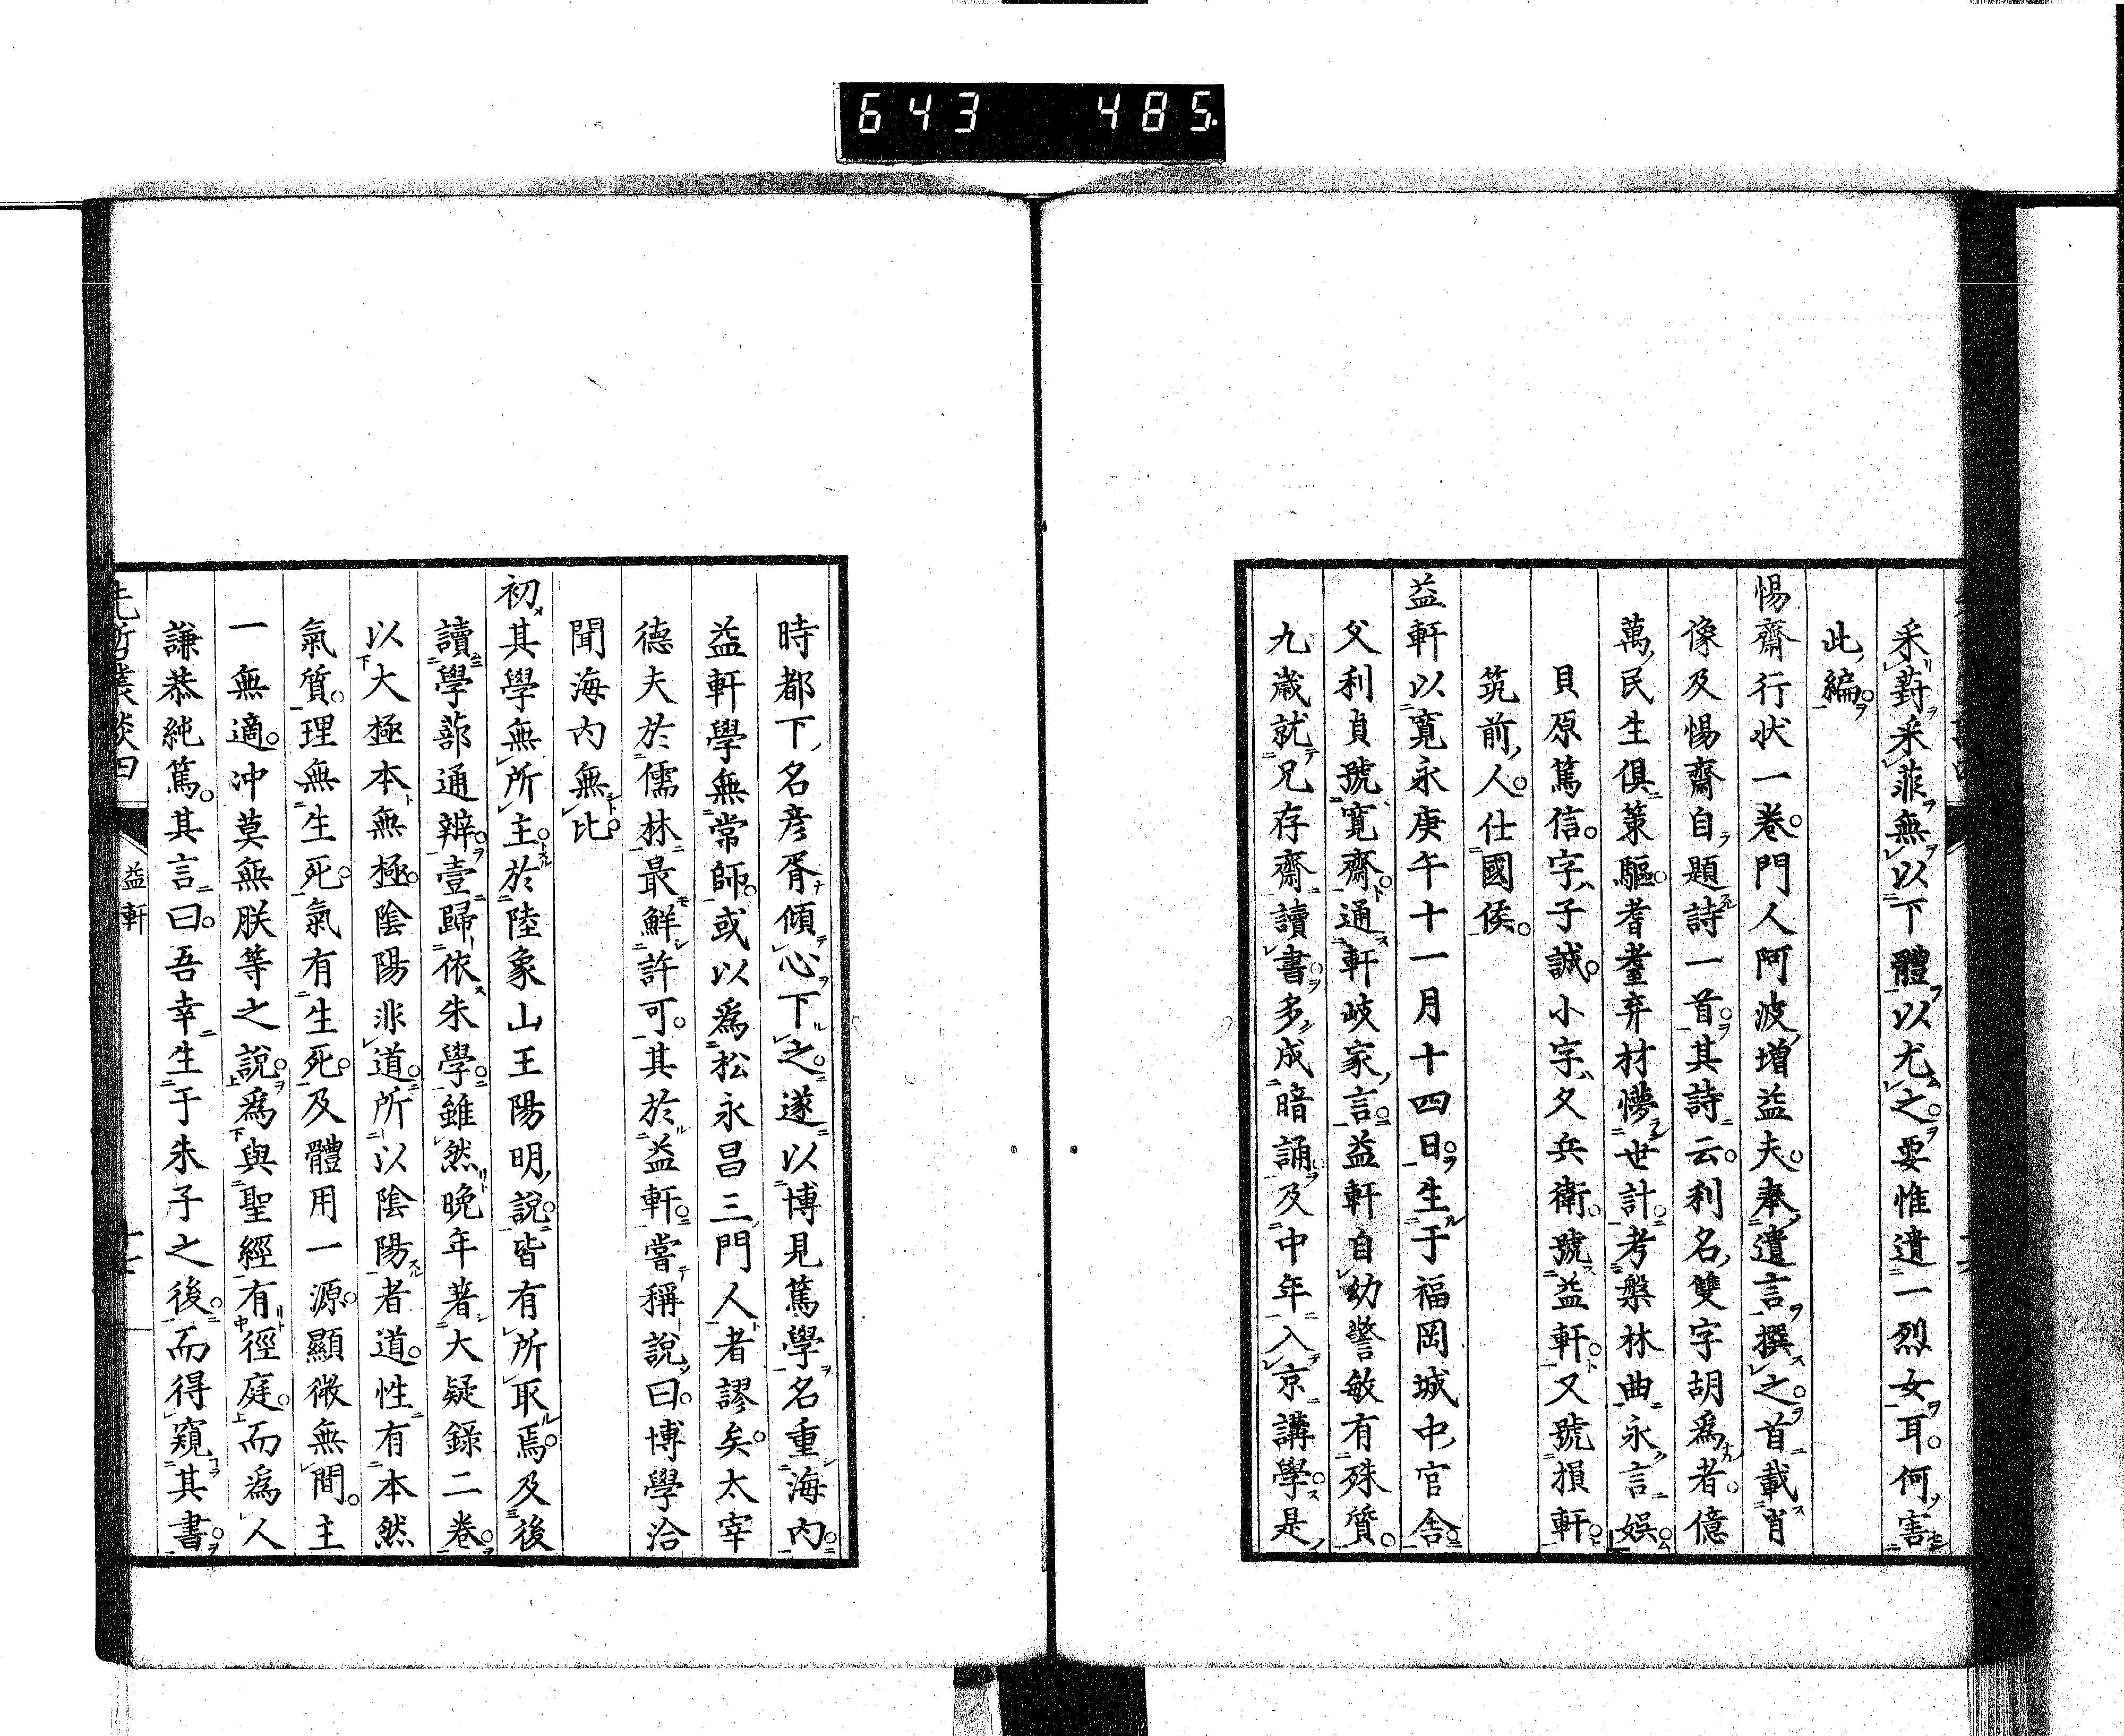 643 485
采葑采菲無以下體以尤之要惟遺一烈女耳何害
此編
惕齋行狀一卷門人阿波增益夫奉遺言撰之首載肖
像及惕齋自題詩一首其詩云利名雙字胡爲者億
萬民生俱策驅耆耋弃材懜世計考槃林曲永言娛
貝原篤信字子誠小字久兵衛號益軒又號損軒
筑前人仕國侯
益軒以寬永庚午十一月十四日生于福岡城中官舍
父利貞號寬齋通軒岐家言益軒自幼警敏有殊質
九歲就兄存齋讀書多成暗誦及中年入京講學是
時都下名彥胥傾心下之遂以博見篤學名重海內
益軒學無常師或以爲松永昌三門人者謬矣太宰
德夫於儒林最鮮許可其於益軒嘗稱說曰博學洽
聞海內無比
初其學無所主於陸象山王陽明說皆有所取焉及後
讀學蔀通辨壹歸依朱學雖然晚年著大疑錄二卷
以大極本無極陰陽非道所以陰陽者道性有本然
氣質理無生死氣有生死及體用一源顯微無間主
一無適沖莫無朕等之說爲與聖經有徑庭而爲人
謙恭純篤其言曰吾幸生于朱子之後而得窺其書
先哲叢談四
益軒